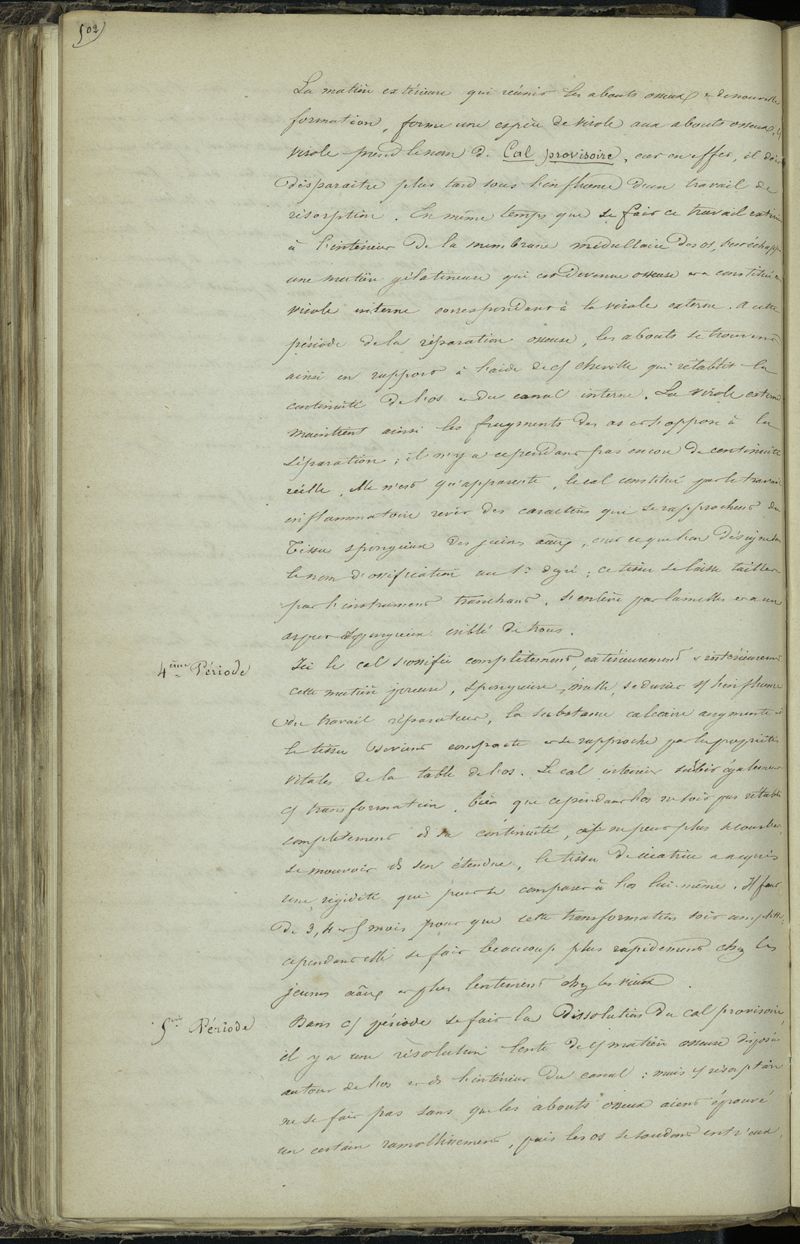 502
La matière extérieure qui réunit les abouts osseux et de nouvelle
formation, forme une espèce de virole aux abouts osseux, cj
virole prend le nom de Cal provisoire, car en effet, il doit
disparaitre plus tard sous l'influence d'un travail de
résorption. En même temps que se fait ce travail
à l'intérieur de la membrane médullaire des os,
une matière gélatineuse qui est devenue osseuse et a constitué
virole interne correspondant à la virole externe. a cette
période de la réparation osseuse, les abouts se trouvent
ainsi en rapport à l'aide de cj cheville qui rétablit la
continuité de l'os et du canal interne. La virole externe
maintient ainsi les fragments des os et s'oppose à la
séparation ; il n'y a cependant pas encore de continuité
réelle, elle n'est qu'apparente, le cal constitué par le travail
inflammatoire revêt des caractères qui se rapprochent du
tissu spongieux des jeunes aaux, c'est ce que l'on désigne
le nom d'ossification au 1er degré ; ce tissu se laisse tailler
par l'instrument tranchant, s'enlève par lamelles et a un
aspect spongieux criblé de trous.
4ème Période
Ici le cal s'ossifie complètement, extérieurement & intérieurement
cette matière poreuse, spongieuse, molle, se durcit sj l'influence
du travail réparateur, la substance calcaire augmente
le tissu devient compacte et se rapproche par les propriétés
vitales de la table de l'os. Le cal intérieur subit également
cj transformation, bien que cependant l'os ne soit pas rétabli
complètement ds sa continuité, il ne peut plus se courber
se mouvoir ds son étendue, le tissu de cicatrice a acquis
une rigidité qui peut se comparer à l'os lui-même. Il faut
de 3, 4 et 5 mois pour que cette transformation soit complète
cependant elle se fait beaucoup plus rapidement chez les
jeunes aaux et plus lentement chez les vieux.
5me Période
Dans cj période se fait la dissolution du cal provisoire,
il y a une résolution lente de cj matière osseuse disposée
autour de l'os et ds l'intérieur du canal : mais cj résorption
ne se fait pas sans que les abouts osseux aient éprouvé
un certain ramollissement, puis les os se soudent entr'eux,